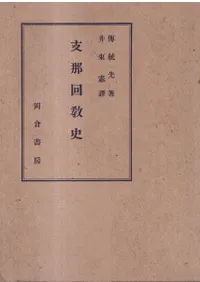 傅統先著
井東憲譯
支那回教史
岡倉書房